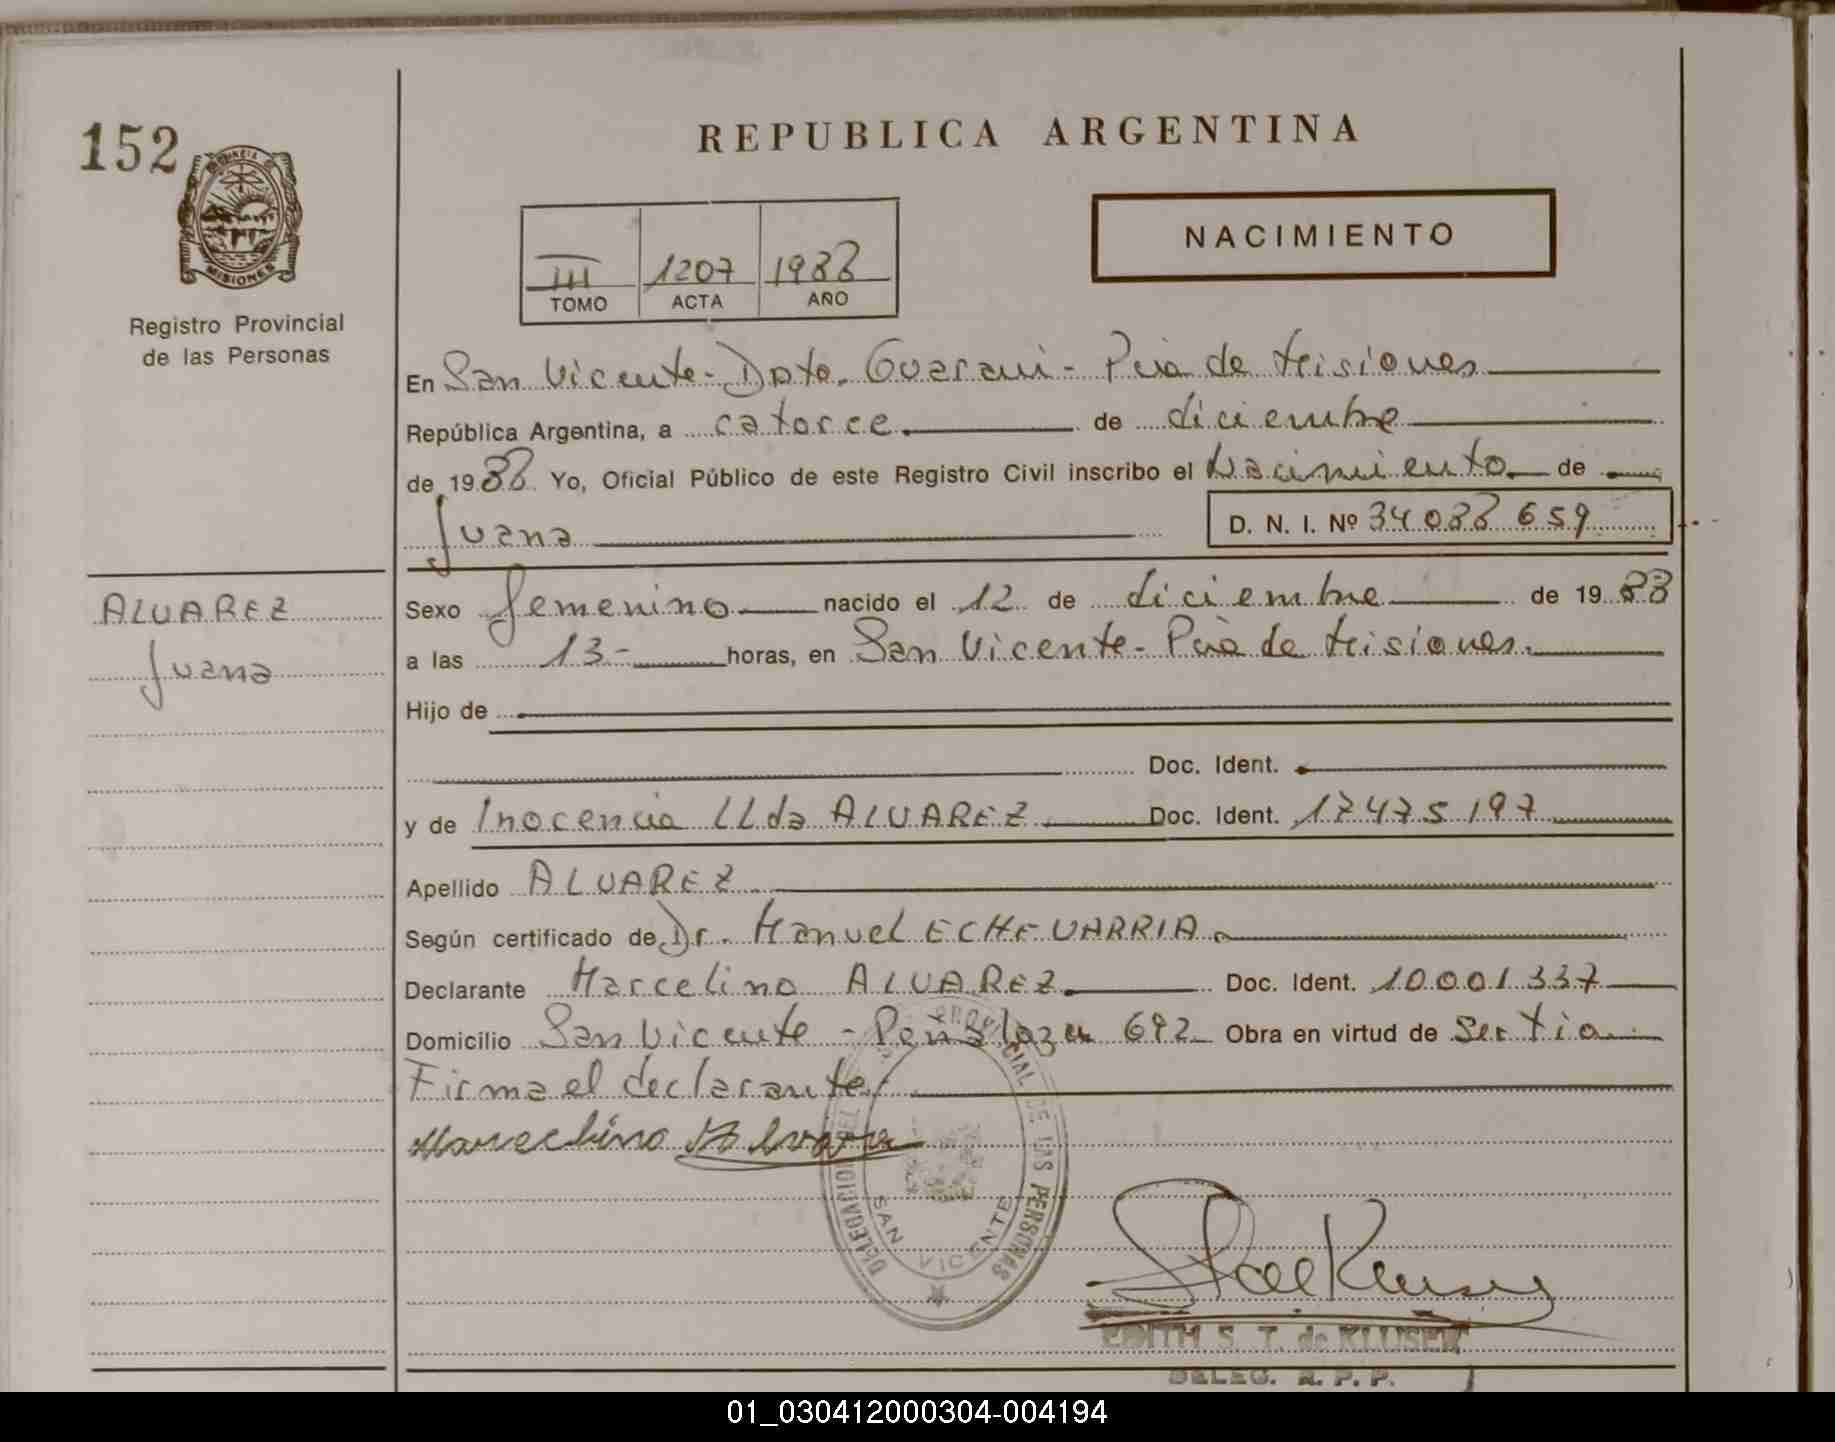 152
PROVINCIA DE
MISIONES
Registro Provincial
de las Personas
REPUBLICA ARGENTINA
NACIMIENTO
III 1207 1988
TOMO ACTA AÑO
En San Vicente - Dpto. Guaraní - Pcia de Misiones
República Argentina, a catorce de diciembre
de 1988 Yo, Oficial Público de este Registro Civil inscribo el Nacimiento de
Juana D. N. I. Nº 34088659
ALVAREZ
Juana
Sexo femenino nacido el 12 de diciembre de 1988
a las 13- horas, en San Vicente - Pcia de Misiones.
Hijo de
Doc. Ident.
y de Inocencia LLda ALVAREZ Doc. Ident. 17475197
Apellido ALVAREZ
Según certificado de Dr. Manuel ECHEVARRIA
Declarante Marcelino ALVAREZ Doc. Ident. 10001337
Domicilio San Vicente - Peñaloza 692 Obra en virtud de Ser tío
Firma el declarante.
DELEGACION DEL REG. PROVINCIAL DE LAS PERSONAS
SAN VICENTE
EDITH S. T. de KLUSEN
DELEG. R. P. P.
01_030412000304-004194